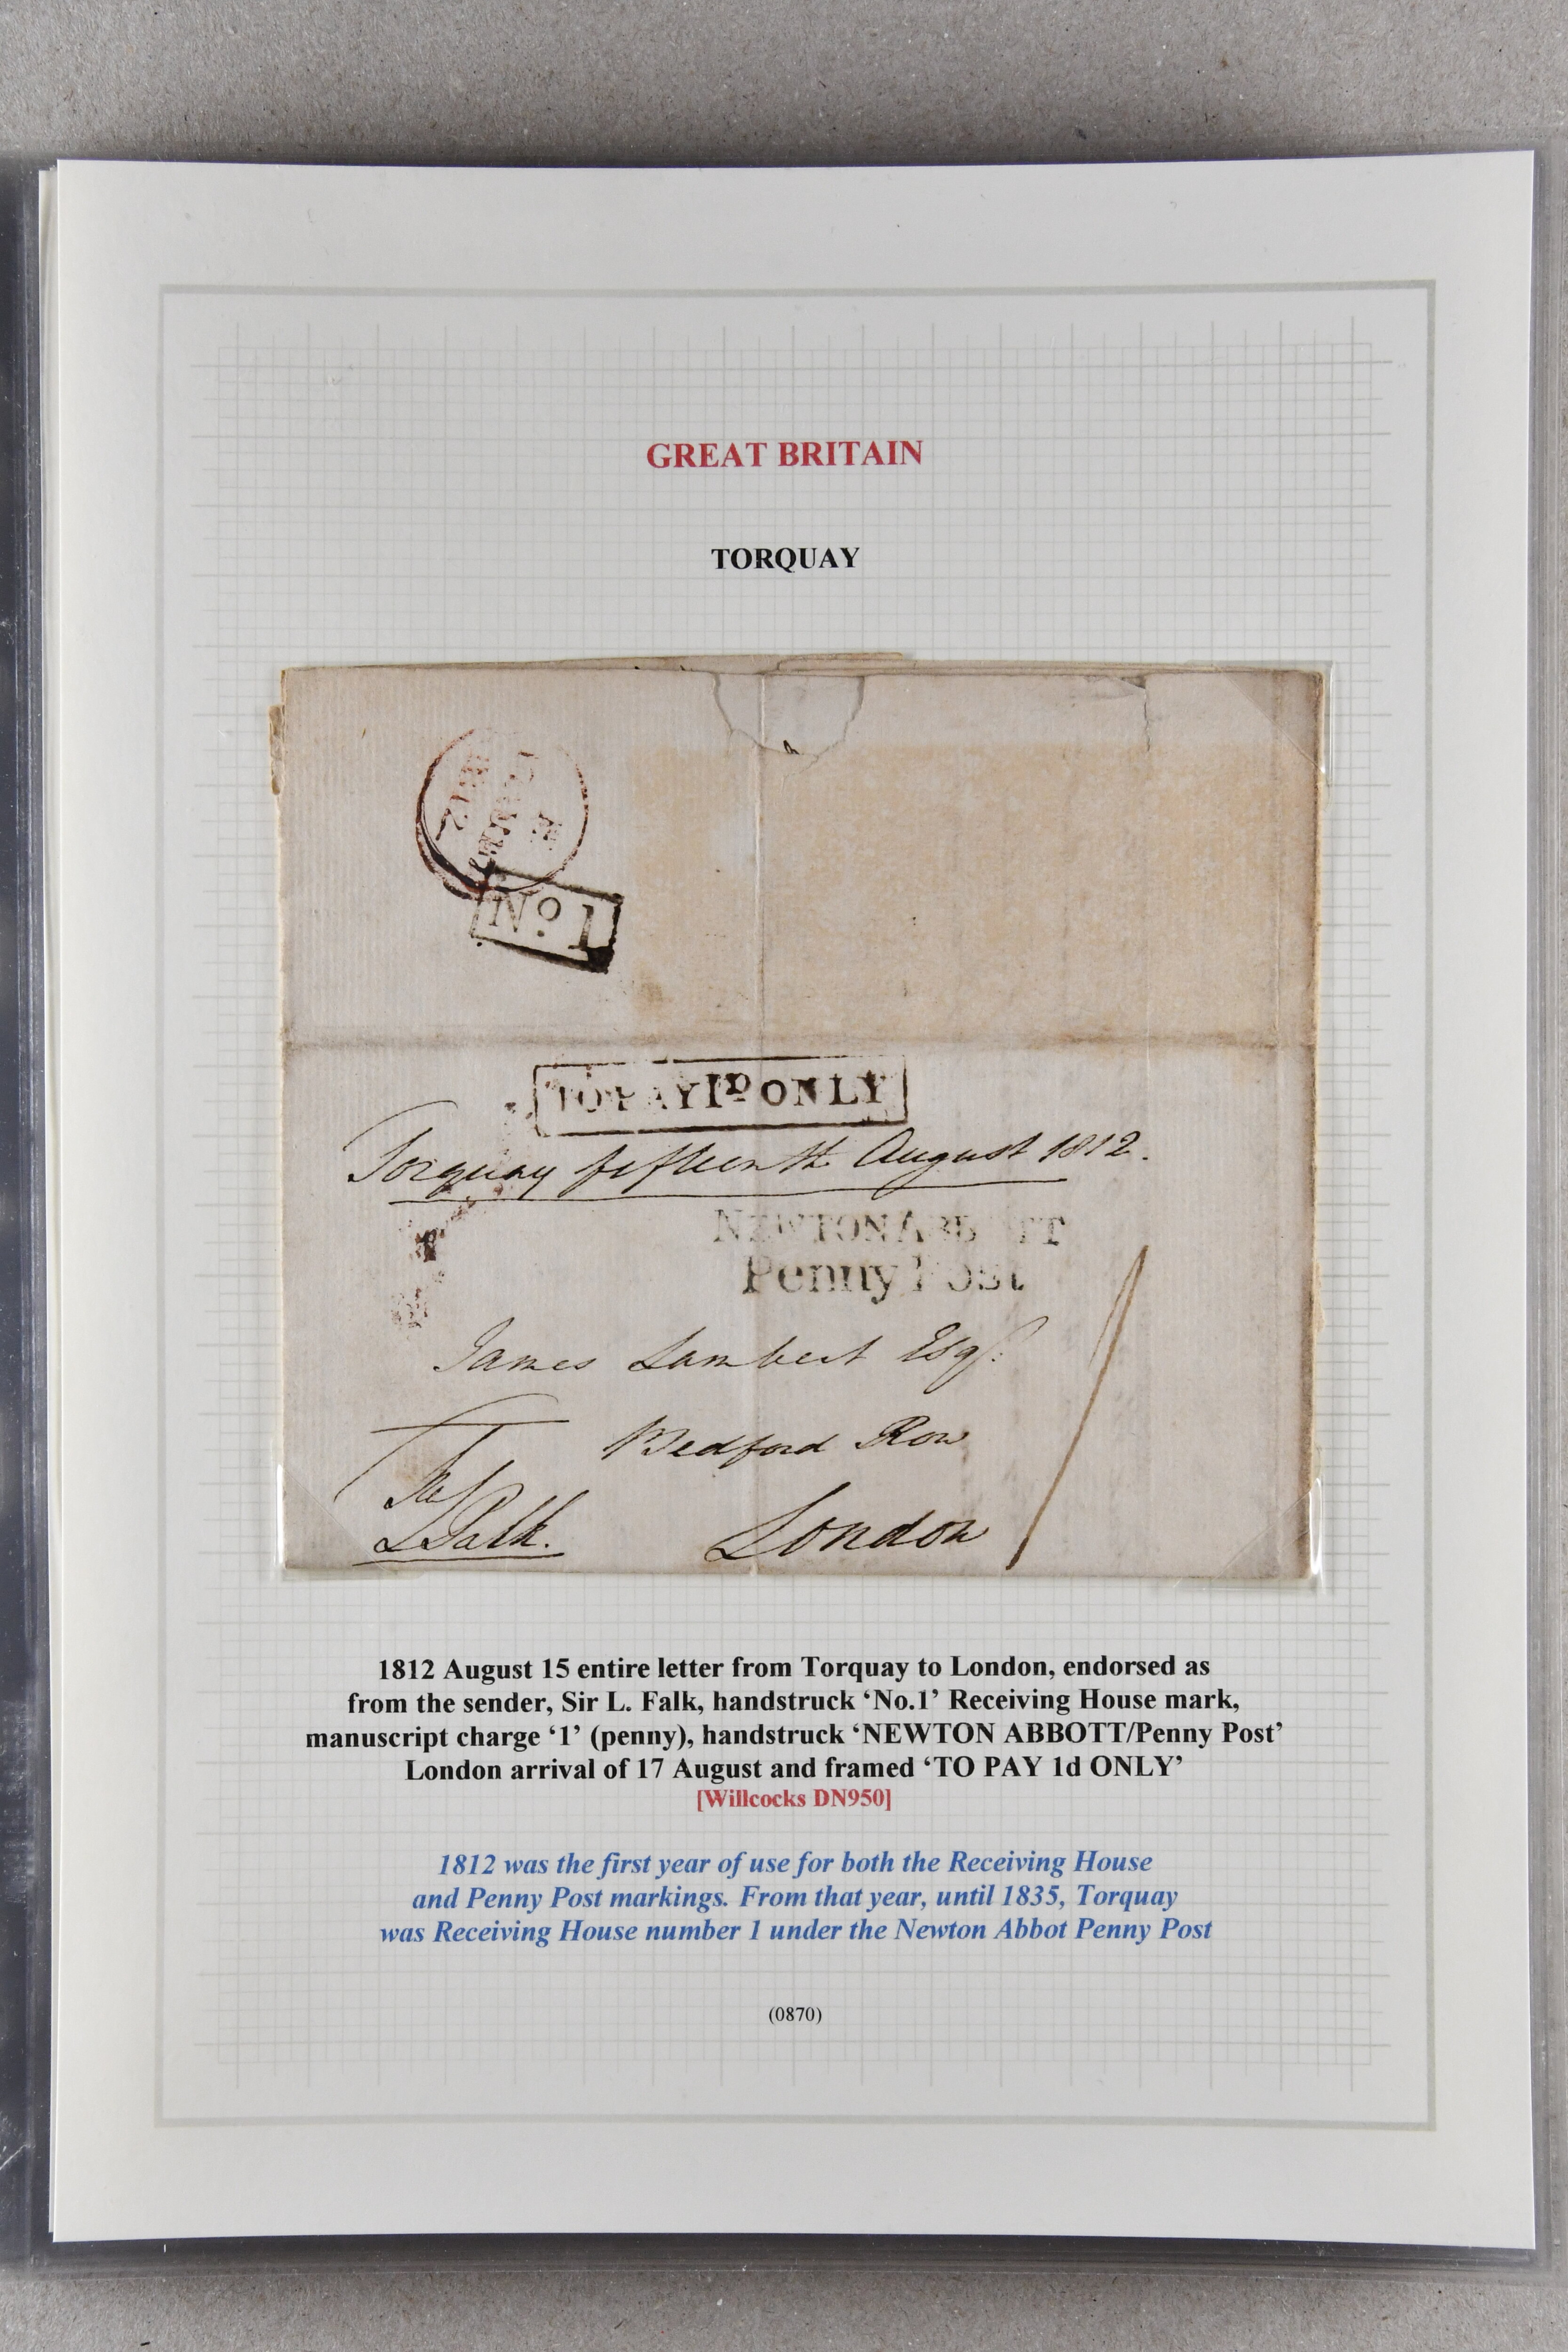 GREAT BRITAIN
TORQUAY
1812
No. 1
TO PAY 1D ONLY
Torquay fifteenth August 1812.
NEWTON ABB TT
Penny Post
James Lambert Esqr.
Bedford Row
London
1
L Palk.
1812 August 15 entire letter from Torquay to London, endorsed as
from the sender, Sir L. Falk, handstruck ‘No.1’ Receiving House mark,
manuscript charge ‘1’ (penny), handstruck ‘NEWTON ABBOTT/Penny Post’
London arrival of 17 August and framed ‘TO PAY 1d ONLY’
[Willcocks DN950]
1812 was the first year of use for both the Receiving House
and Penny Post markings. From that year, until 1835, Torquay
was Receiving House number 1 under the Newton Abbot Penny Post
(0870)